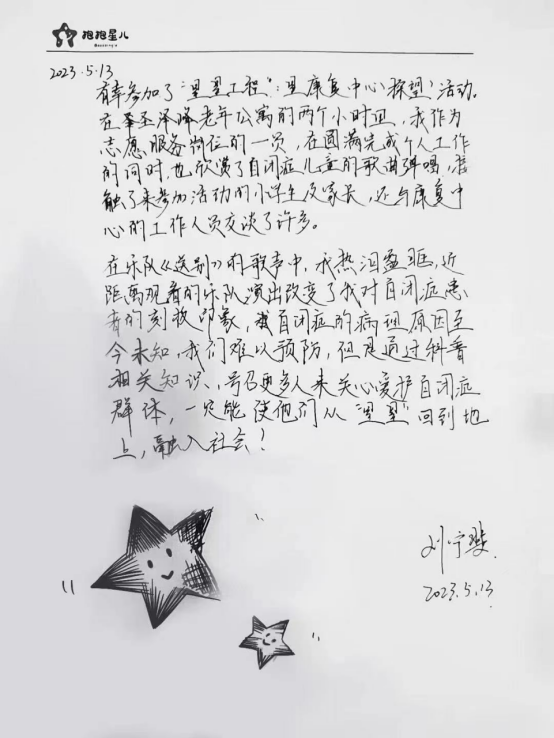 抱抱星儿
2023.5.13
有幸参加了"星星工程":星康复中心探望活动。
在 老年公寓的两个小时里,我作为
志愿服务岗位的一员,在圆满完成个人工作
的同时,也欣赏了自闭症儿童的歌曲弹唱,接
触了来参加活动的小学生及家长,还与康复中
心的工作人员交谈了许多。
在乐队《送别》的歌声中,我热泪盈眶,近
距离观看的乐队演出改变了我对自闭症患
者的刻板印象,自闭症的病理原因至
今未知,我们难以预防,但是通过科普
相关知识,号召更多人来关心爱护自闭症
群体,一定能使他们从"星星"回到地
上,融入社会!
刘宁
2023.5.13